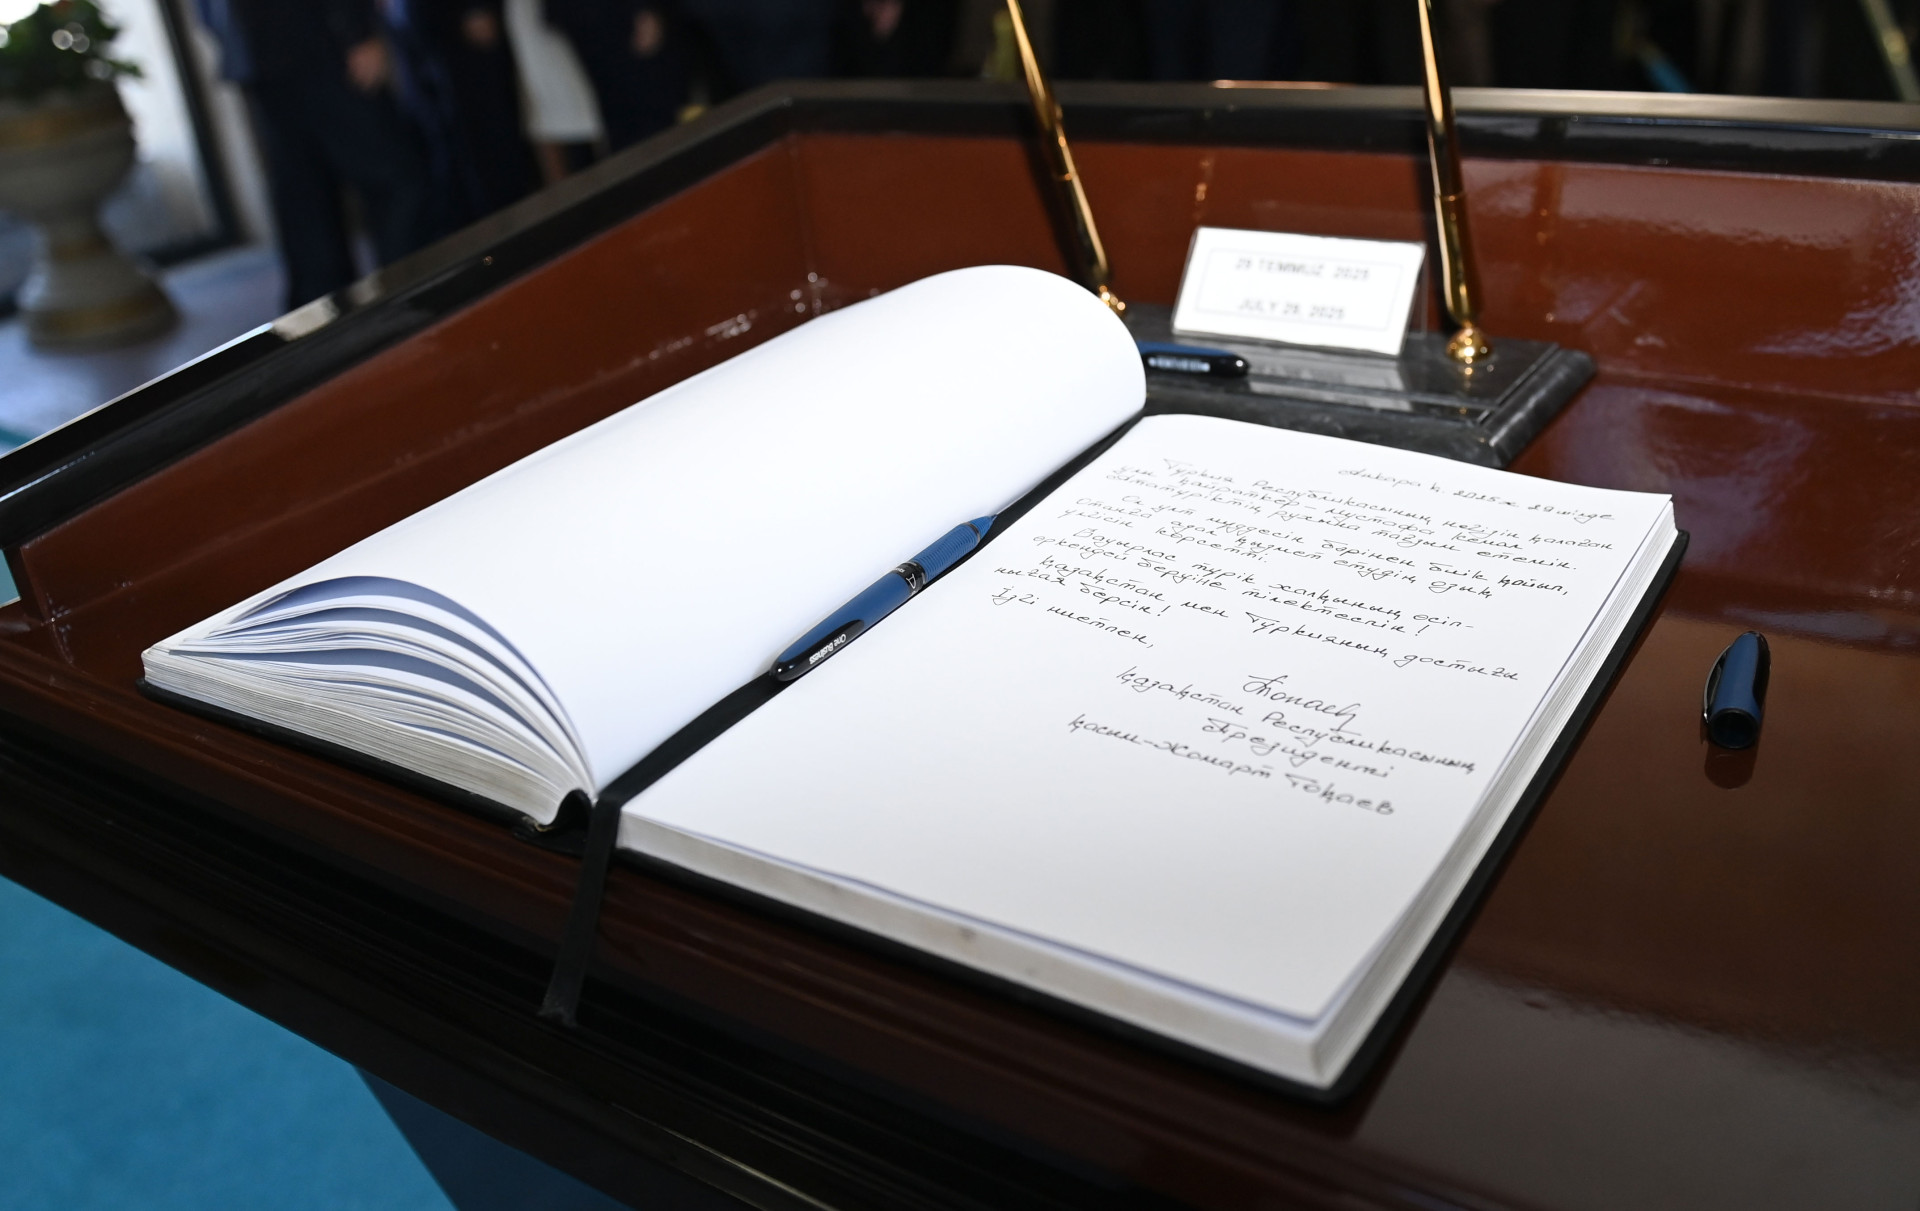 29 TEMMUZ 2025
JULY 29, 2025
Анкара қ. 2025ж 29 шілде
Түркия Республикасының негізін қалаған
ұлы қайраткер – Мустафа Кемал
Ататүріктің рухына тағзым етемін.
Ол ұлт мүддесін бәрінен биік қойып,
Отанға адал қызмет етудің озық
үлгісін көрсетті.
Бауырлас түрік халқының өсіп-
өркендей беруіне тілектеспін!
Қазақстан мен Түркияның достығы
нығая берсін!
Ізгі ниетпен,
Қазақстан Республикасының
Президенті
Қасым-Жомарт Тоқаев
One Business